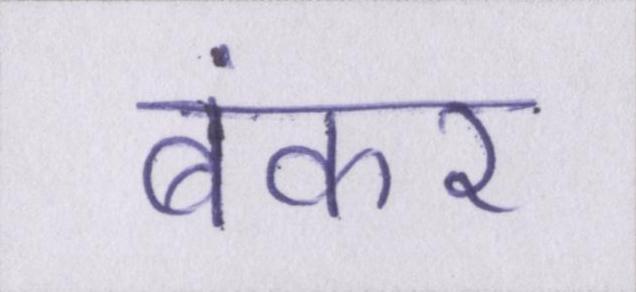 बंकर